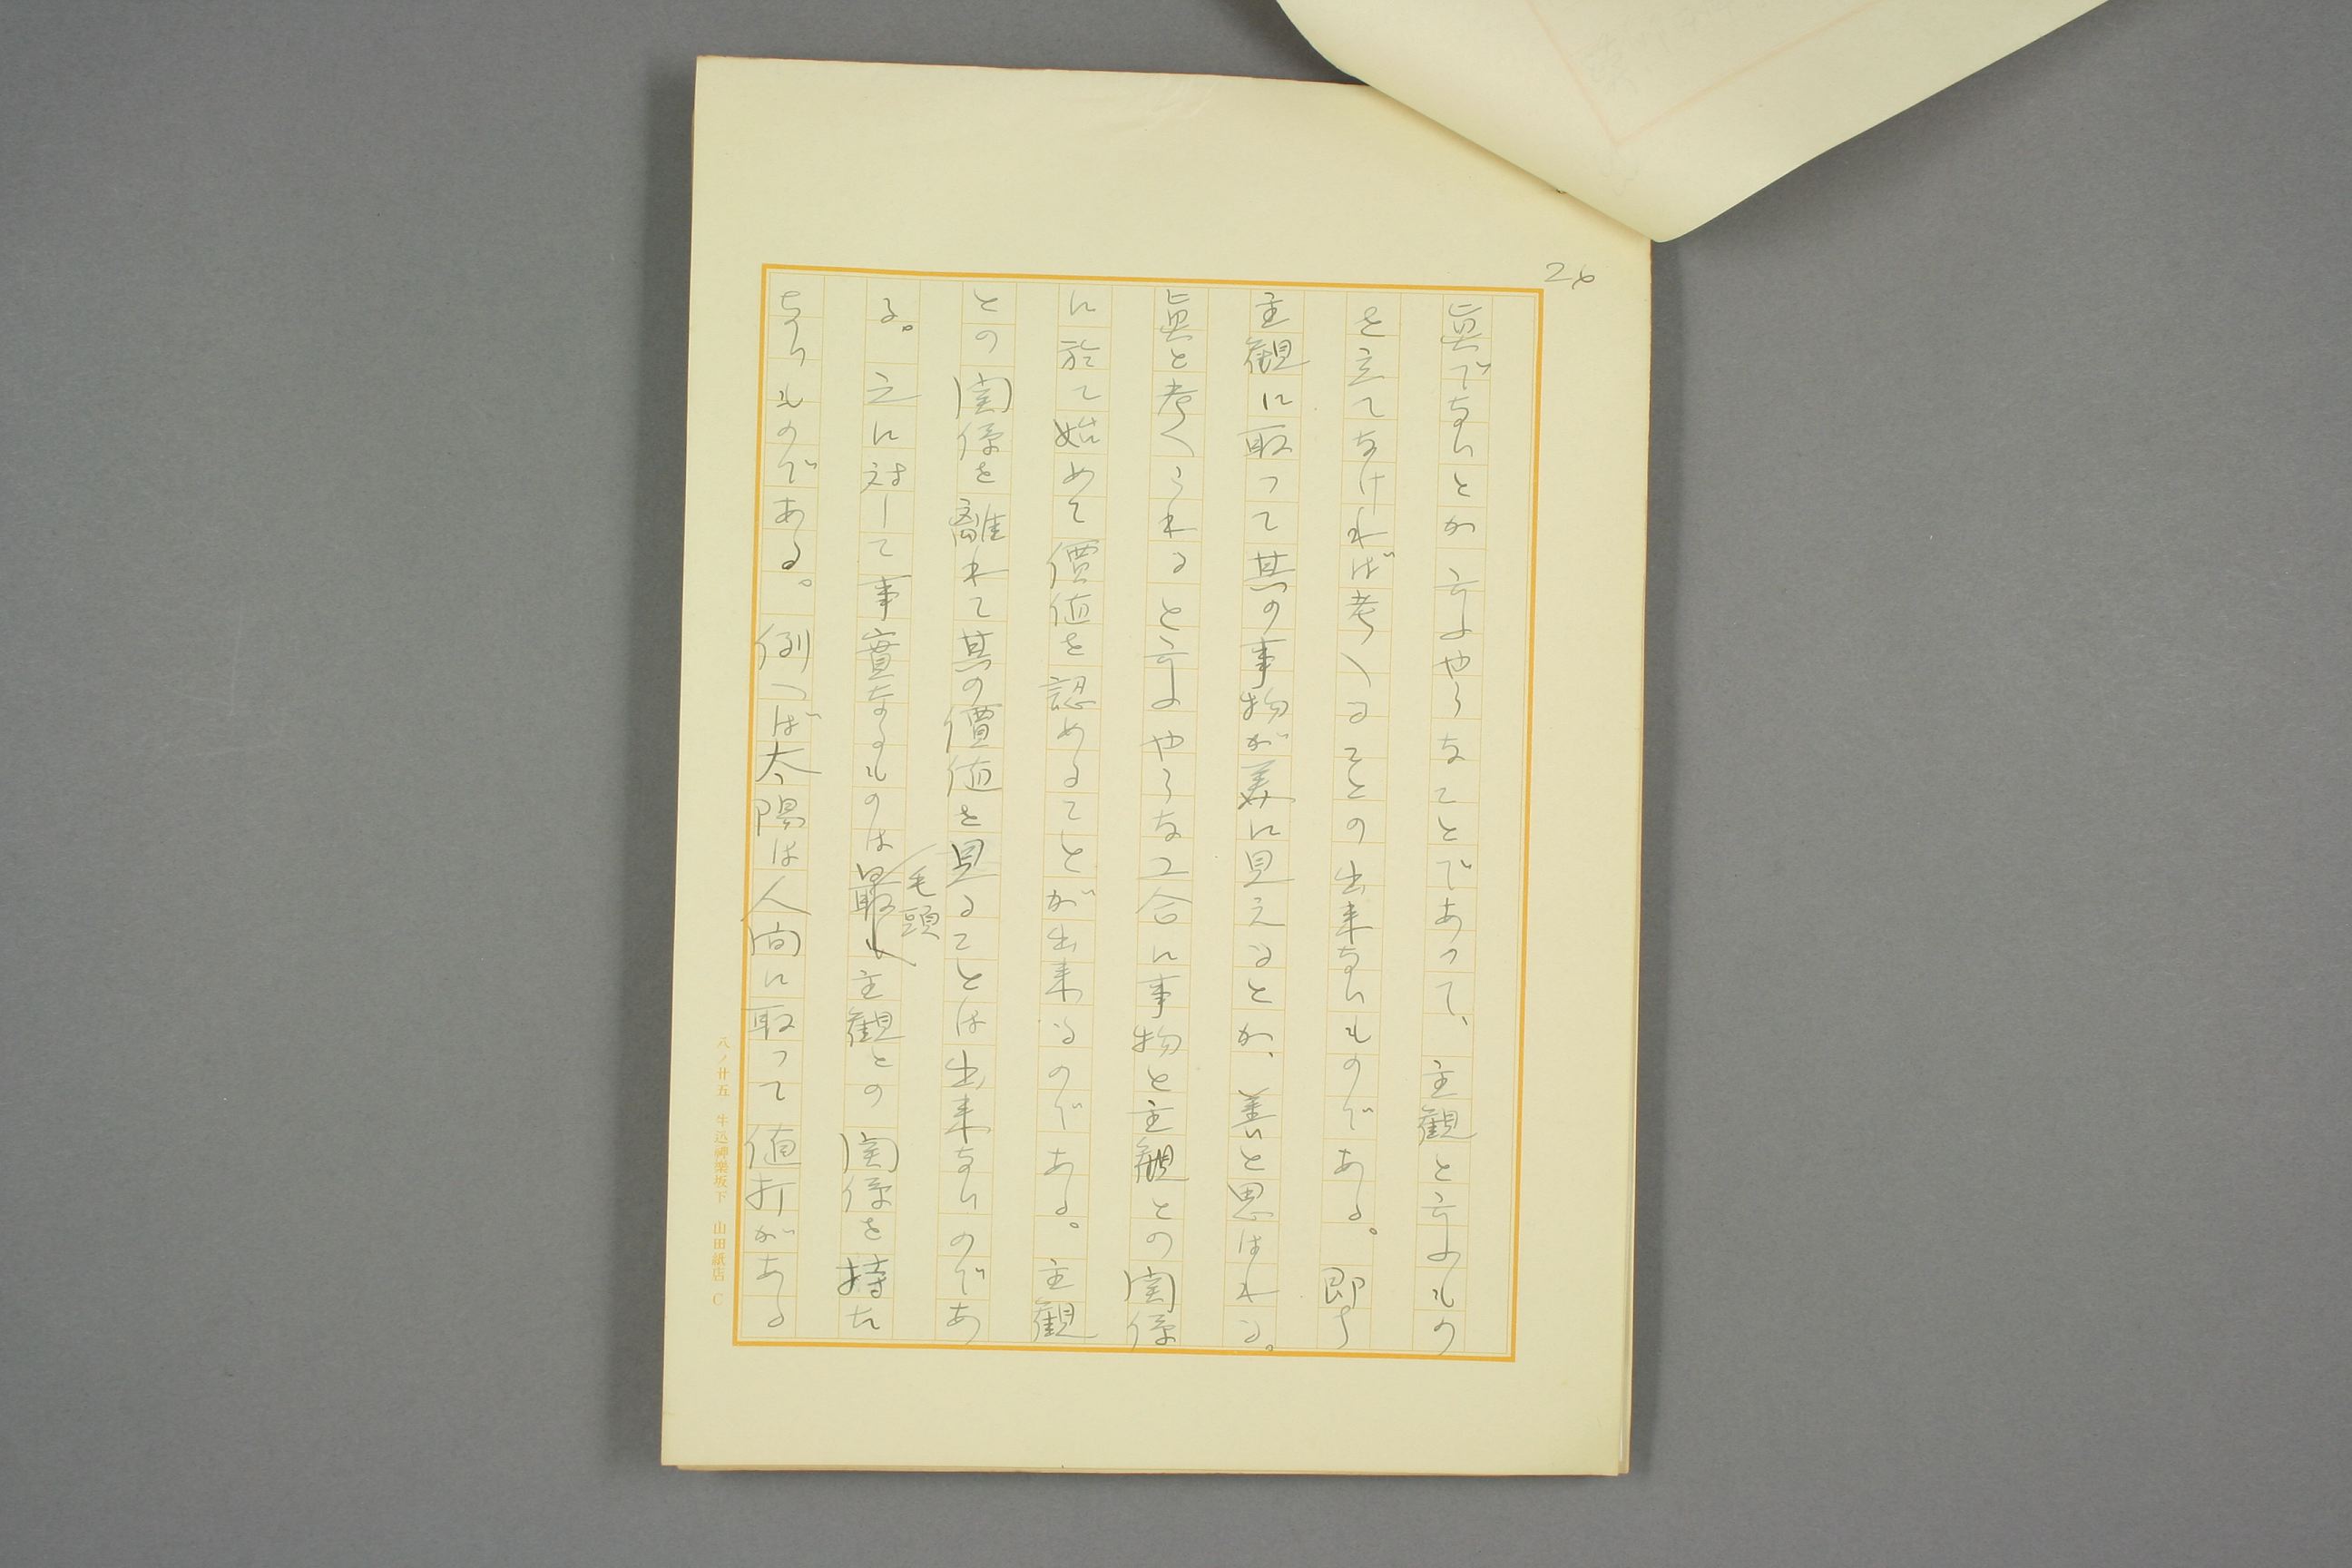 26
眞でないとか云ふやうなことであつて、主観と云ふもの
を立てなければ考へることの出来ないものである。即ち
主観に取つて其の事物が美に見えるとか、善いと思はれる。
眞と考へられると云ふやうな工合に事物と主観との関係
に於て始めて價値を認めることが出来るのである。主観
との関係を離れて其の價値を見ることは出来ないのであ
る。之に対して事實なるものは毛頭主観との関係を持た
ないものである。例へば太陽は人間に取つて値打がある
八ノ廿五 牛込神樂坂下 山田紙店 C